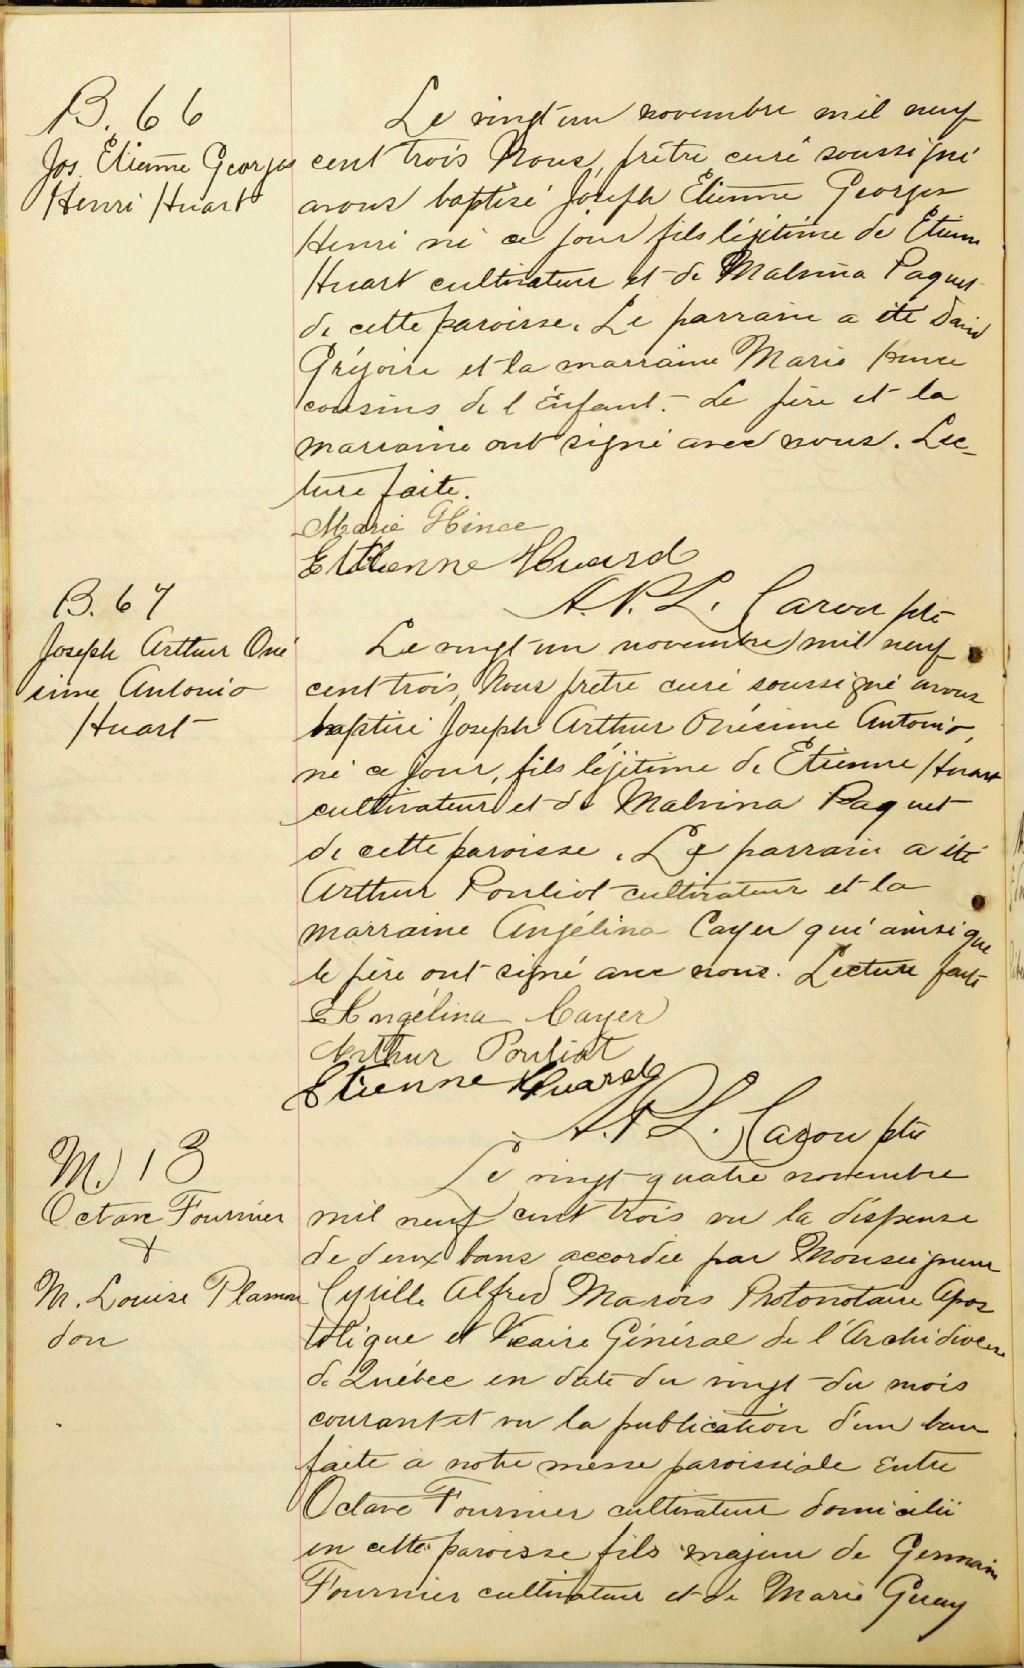 B. 66
Jos. Etienne Georges
Henri Huart
Le vingt un novembre mil neuf
cent trois Nous, prêtre curé soussigné
avons baptisé Joseph Etienne Georges
Henri né ce jour fils légitime de Etienne
Huart cultivateur et de Malvina Paquet
de cette paroisse. Le parrain a été David
Grégoire et la marraine Marie Hince
cousins de l'Enfant. Le père et la
marraine ont signé avec nous. Lec-
ture faite.
Marie Hince
Etienne Huard
A. P. L. Caron ptre
B. 67
Joseph Arthur Oné
sime Antonio
Huart
Le vingt un novembre mil neuf
cent trois, Nous prêtre curé soussigné avons
baptisé Joseph Arthur Onésime Antonio,
né ce jour, fils légitime de Etienne Huart
cultivateur et de Malvina Paquet
de cette paroisse. Le parrain a été
Arthur Pouliot cultivateur et la
marraine Angélina Cayer qui ainsi que
le père ont signé avec nous. Lecture faite
Angélina Cayer
Arthur Pouliot
Etienne Huard
A. P. L. Caron ptre
M. 13
Octave Fournier
&
M. Louise Plamon
don
Le vingt quatre novembre
mil neuf cent trois vu la dispense
de deux bans accordée par Monseigneur
Cyrille Alfred Marois Protonotaire Apos
tolique et Vicaire Général de l'Archidiocèse
de Québec en date du vingt du mois
courant et vu la publication d'un ban
faite à notre messe paroissiale entre
Octave Fournier cultivateur domicilié
en cette paroisse fils majeur de Germain
Fournier cultivateur et de Marie Guay